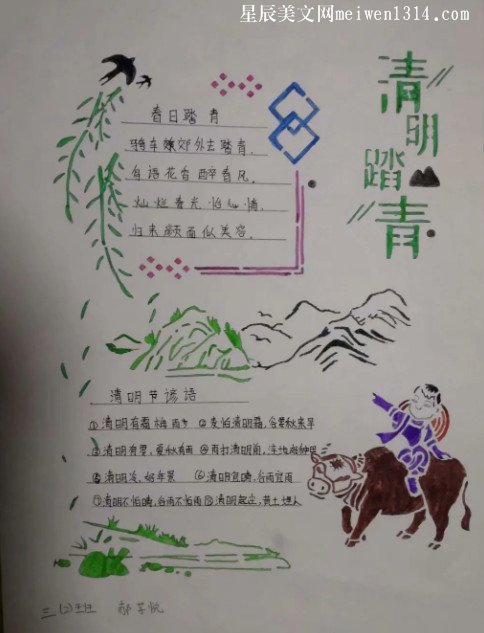 星辰美文网meiwen1314.com
清明踏青
春日踏青
骑车郊外去踏青,
鸟语花香醉春风。
灿烂春光怡心情,
归来颜面似美容。
清明节谚语
①清明有霜梅雨少 ②麦怕清明霜,谷要秋来旱
③清明有雾,夏秋有雨 ④雨打清明前,洼地好种田
⑤清明冷,好年景 ⑥清明宜晴,谷雨宜雨
⑦清明不怕晴,谷雨不怕雨 ⑧清明起尘,黄土埋人
三(2)班 郝芊悦